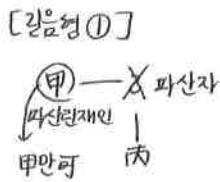 [길음형 ①]
甲 — X 파산자
파산관재인
甲만 可 丙